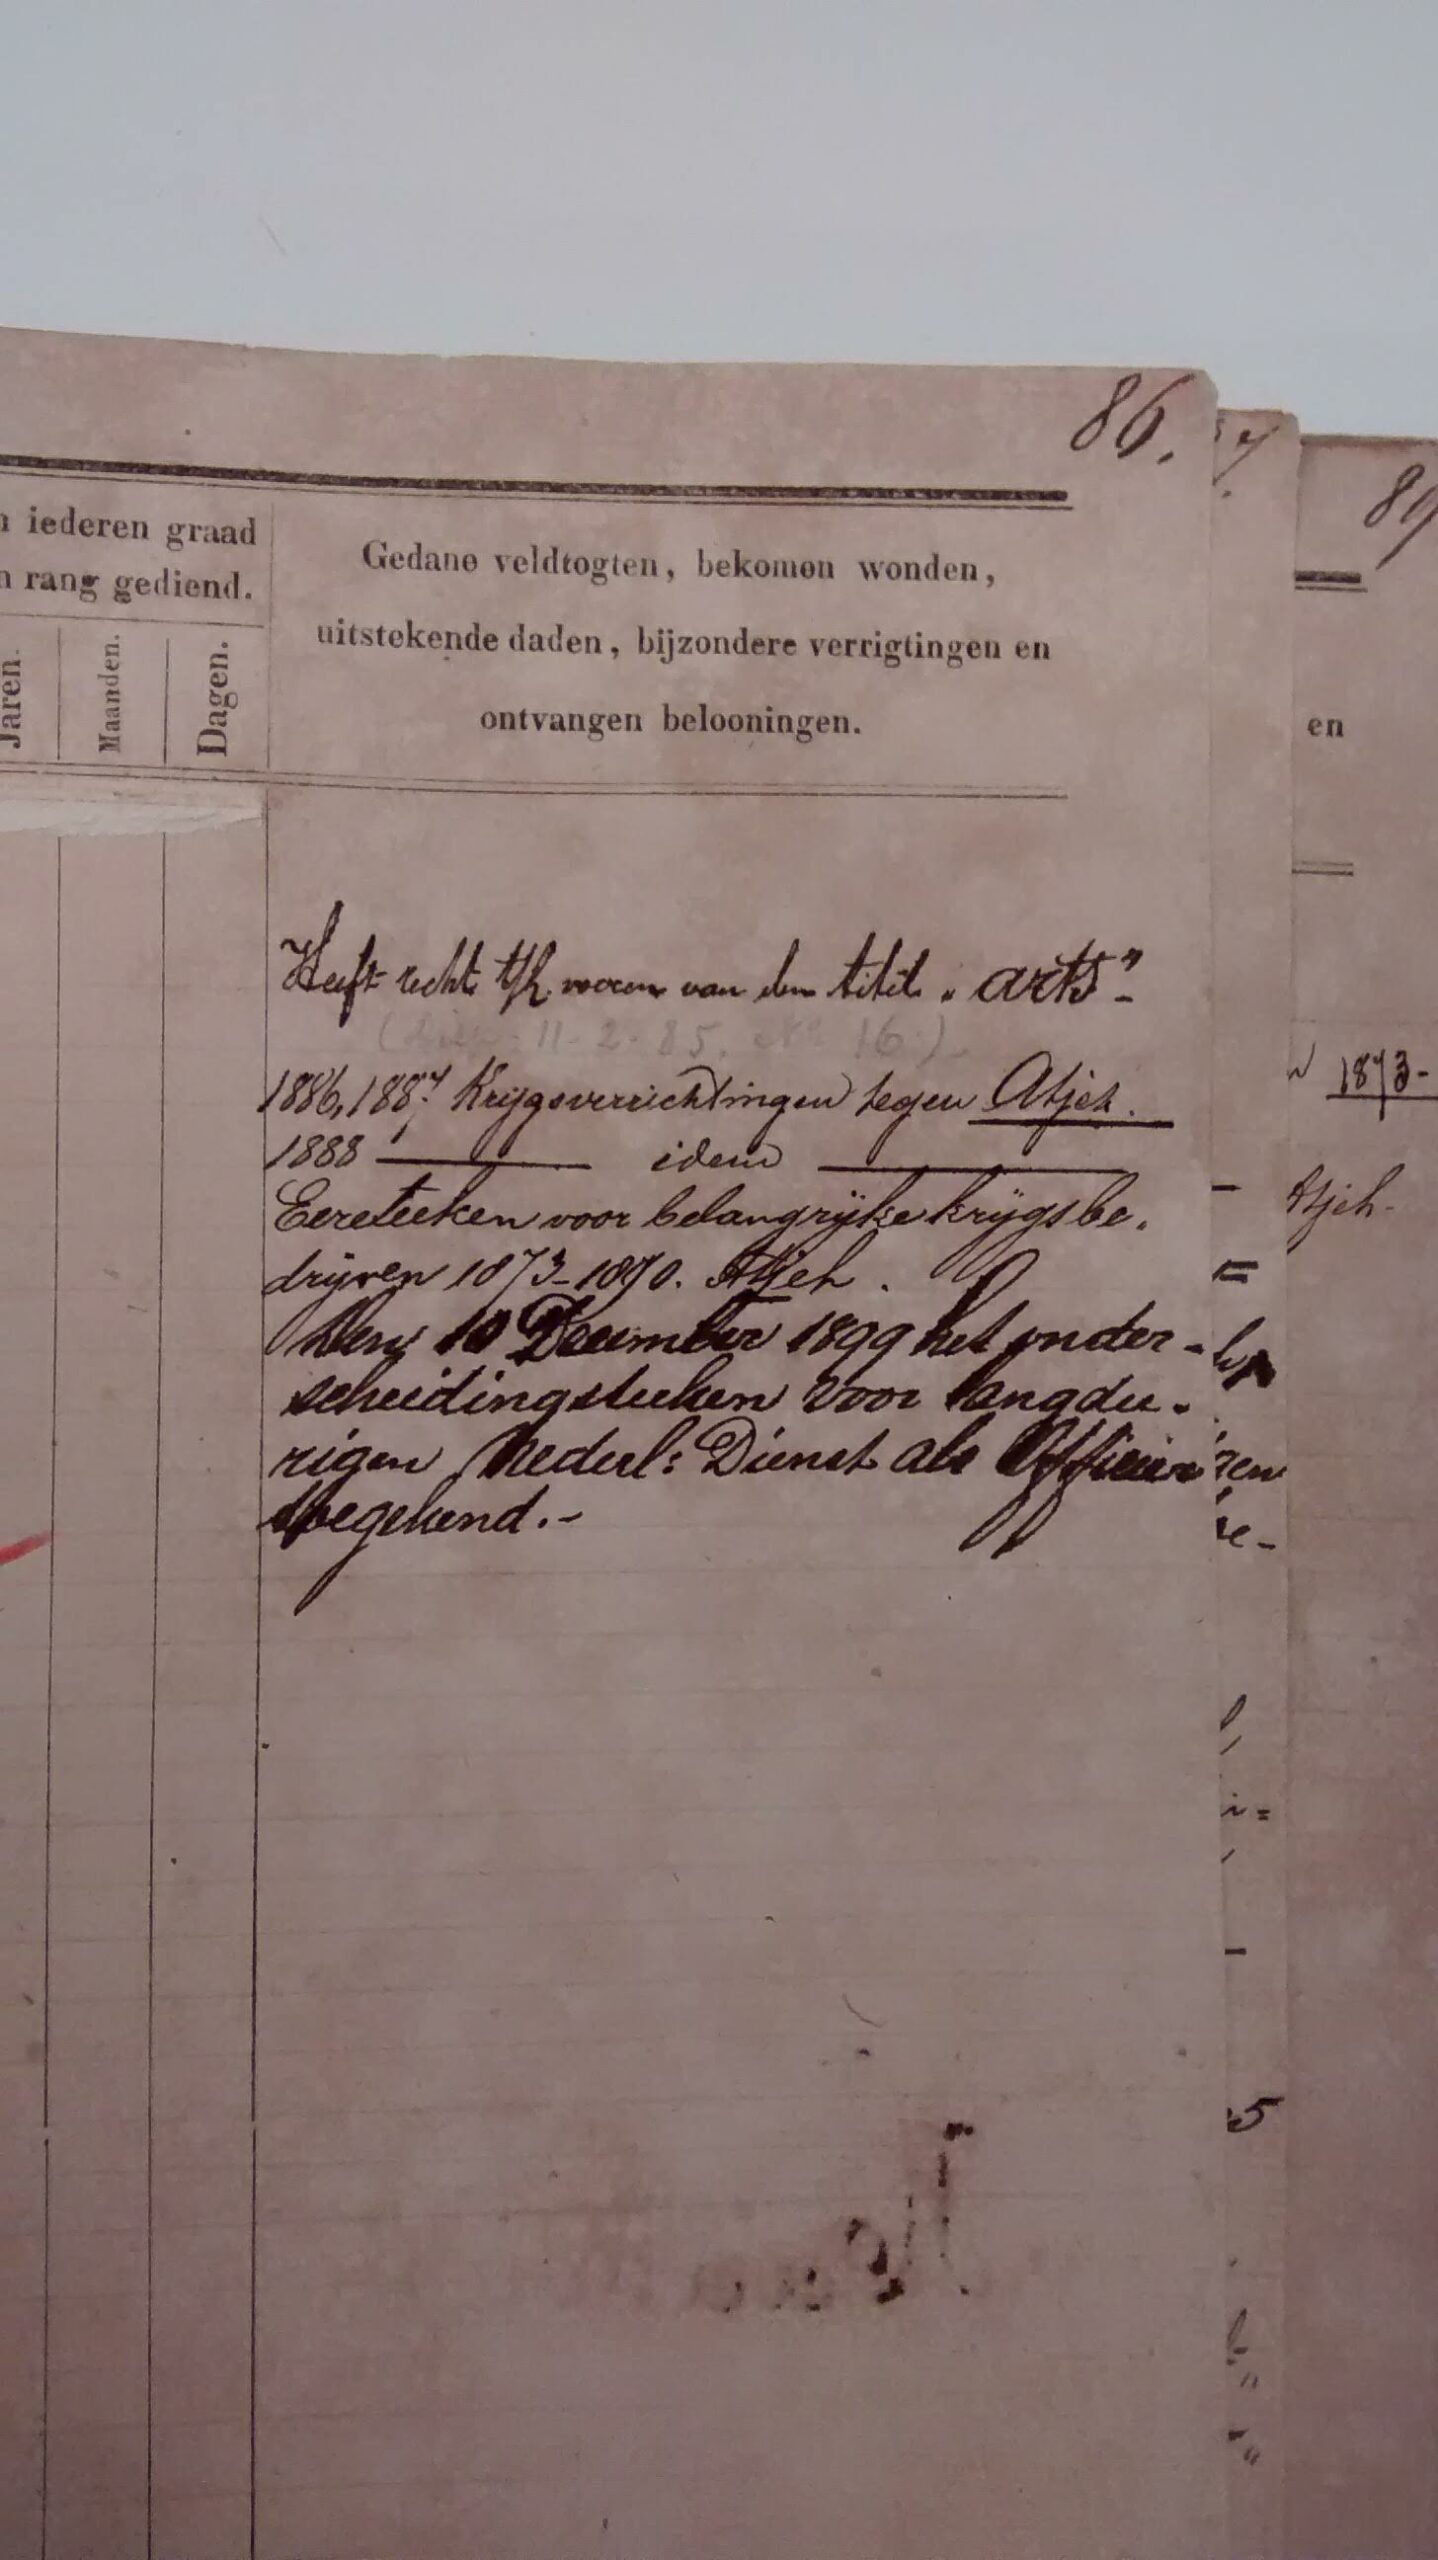 86.
89
iederen graad
rang gediend.
Jaren.
Maanden.
Dagen.
Gedane veldtogten, bekomen wonden,
uitstekende daden, bijzondere verrigtingen en
ontvangen belooningen.
en
Heeft recht t/h voeren van den titel „arts"-
11-2-85. No 16.)
1886, 1887 Krijgsverrichtingen tegen Atjeh.
1888 — idem —
Eereteeken voor belangrijke krijgsbe-
drijven 1873-1890. Atjeh.
Den 10 December 1899 het onder-
scheidingsteeken voor langdu-
rigen Nederl: Dienst als Officier
toegekend.-
1873-
Atjeh-
5